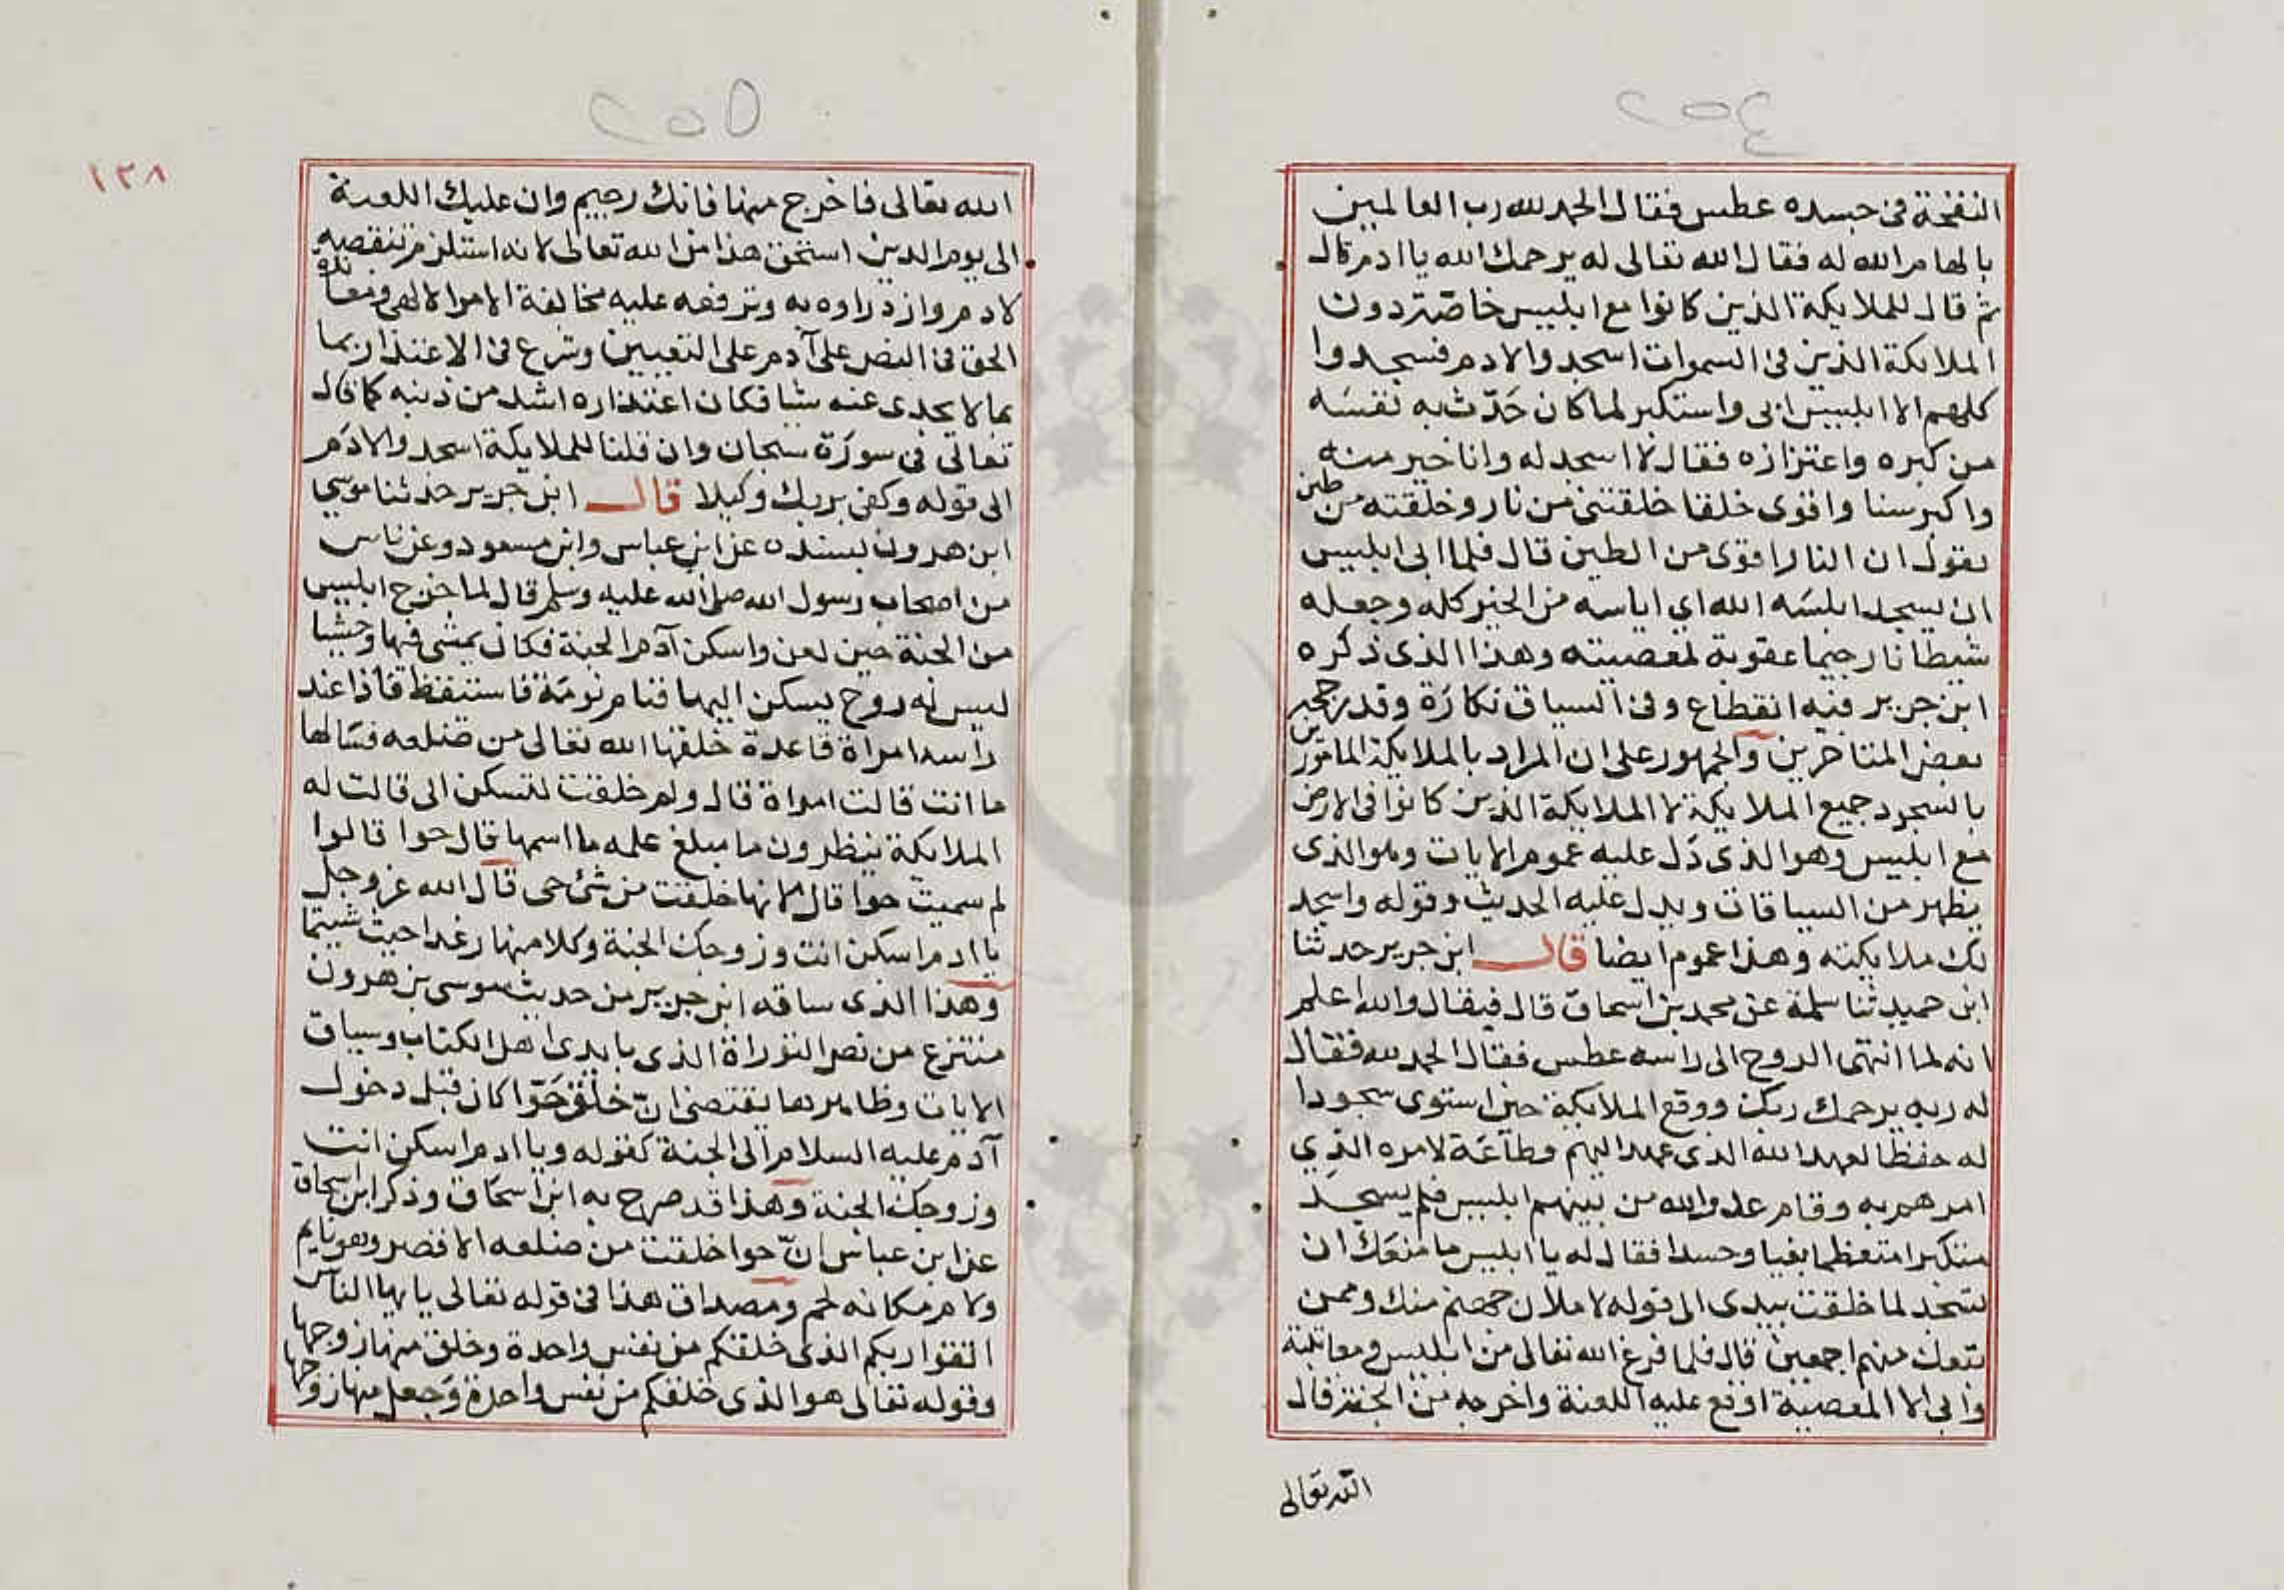 ٢٥٤
النفخة فى جسده عطس فقال الحمد لله رب العالمين
بالهام الله له فقال الله تعالى له يرحمك الله يا ادم قال
ثم قال للملايكة الذين كانوا مع ابليس خاصّة دون
الملايكة الذين فى السموات اسجدوا لادم فسجدوا
كلهم الا ابليس ابى واستكبر لما كان حَدّث به نفسَه
من كبره واعتزازه فقال لا اسجد له وانا خير منه
واكبر سنا واقوى خلقا خلقتنى من نار وخلقته من طين
يقول ان النار اقوى من الطين قال فلما ابى ابليس
ان يسجد ابلسَه الله اي اياسه من الخير كله وجعله
شيطانا رجيما عقوبة لمعصيته وهذا الذى ذكره
ابن جرير فيه انقطاع وفى السياق نكارَة وقد رجحه
بعض المتاخرين والجمهور على ان المراد بالملايكة المامورين
بالسجود جميع الملايكة لا الملايكة الذين كانوا فى الارض
مع ابليس وهو الذى دَل عليه عموم الايات وهو الذى
يظهر من السياقات ويدل عليه الحديث وقوله واسجد
لك ملايكته وهذا عموم ايضا قال ابن جرير حدثنا
ابن حميد ثنا سلمة عن محمد بن اسحاق قال فيقال والله اعلم
انه لما انتهى الروح الى راسه عطس فقال الحمد لله فقال
له ربه يرحمك ربك ووقع الملايكة حين استوى سجودا
له حفظا لعهد الله الذى عهد اليهم وطاعَة لامره الذِي
امرهم به وقام عدو الله من بينهم ابليس فلم يسجدَ
متكبرا متعظما بغيا وحسدا فقال له يا ابليس ما منعَك ان
تسجد لما خلقت بيدى الى قوله لاملان جهنم منك وممن
تبعك منهم اجمعين قال فلما فرغ الله تعالى من ابليس ومعاتبته
وابى الا المعصية اوقع عليه اللعنة واخرجه من الجنة فقال
الله تعالى
٢٥٥
١٢٨
الله تعالى فاخرج منها فانك رجيم وان عليك اللعنة
الى يوم الدين استحق هذا من الله تعالى لانه استلزم تنقصه
لادم وازدراوه به وترفعه عليه مخالفة الامر الالهى ومعاندة
الحق فى النص على آدم على التعيين وشرع فى الاعتذار بما
بما لا يجدى عنه شيا فكان اعتذاره اشد من ذنبه كما قال
تعالى فى سورَة سبحان وان قلنا للملايكة اسجدوا لادَم
الى قوله وكفى بربك وكيلا قال ابن جرير حدثنا موسي
ابن هرون بسنده عن ابن عباس وابن مسعود وعن ناس
من اصحاب رسول الله صلى الله عليه وسلم قال لما خرج ابليس
من الجنة حين لعن واسكن آدم الجنة فكان يمشى فيها وحشيا
ليس له روج يسكن اليها فنام نومَة فاستيقظ فاذا عند
راسه امراة قاعدة خلقها الله تعالى من ضلعه فسَالها
ما انت قالت امراة قال ولم خلقت لتسكن الى قالت له
الملايكة ينظرون ما مبلغ علمه ما اسمها قال حوا قالوا
لم سميت حوا قال لانها خلقت من شئ حى قال الله عز وجل
يا ادم اسكن انت وزوجك الجنة وكلا منها رغدا حيث شيتما
وهذا الذى ساقه ابن جرير من حديث موسى بن هرون
منتزع من نص التوراة الذى بايدى اهل الكتاب وسياق
الايات وظاهرها يقتضى انّ خلق حَوّا كان قبل دخول
آدم عليه السلام الى الجنة كقوله ويا ادم اسكن انت
وزوجك الجنة وهذا قد صرح به ابن اسحَاق وذكر ابن اسحاق
عن ابن عباس انّ حوا خلقت من ضلعه الاقصر وهو نايم
ولام مكانه لحم ومصداق هذا فى قوله تعالى يايها الناس
اتقوا ربكم الذى خلقكم من نفس واحدة وخلق منها زوجها
وقوله تعالى هو الذى خلقكم من نفس واحدة وَجعل منها زوجها